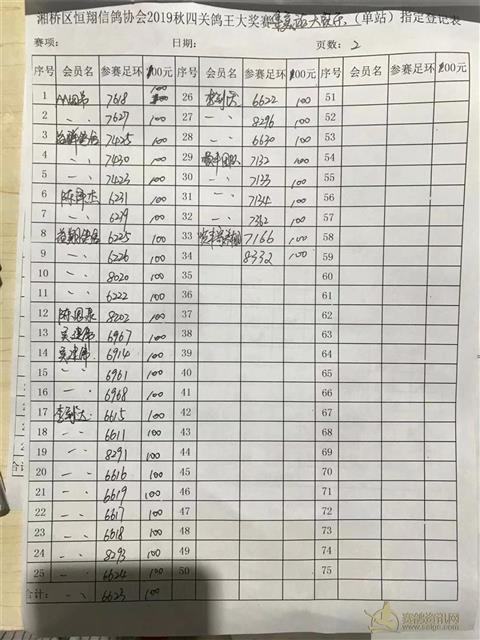 湘桥区恒翔信鸽协会2019秋四关鸽王大奖赛 （单站）指定登记表
赛项： 日期： 页数：2
序号 会员名 参赛足环 100元 序号 会员名 参赛足环 100元 序号 会员名 参赛足环 100元
1 7618 100 26 李到达 6622 100 51
2 〃 7627 100 27 〃 8296 100 52
3 7425 100 28 〃 6630 100 53
4 〃 7430 100 29 7132 100 54
5 〃 7423 100 30 〃 7133 100 55
6 陈泽杰 6231 100 31 〃 7134 100 56
7 〃 6279 100 32 〃 7362 100 57
8 6225 100 33 7166 100 58
9 〃 6226 100 34 8332 100 59
10 〃 8020 100 35 60
11 〃 6222 100 36 61
12 8202 100 37 62
13 吴建伟 6967 100 38 63
14 吴建伟 6914 100 39 64
15 〃 6961 100 40 65
16 〃 6968 100 41 66
17 李到达 6615 100 42 67
18 〃 6611 100 43 68
19 〃 8291 100 44 69
20 〃 6616 100 45 70
21 〃 6619 100 46 71
22 〃 6617 100 47 72
23 〃 6618 100 48 73
24 〃 8293 100 49 74
25 〃 6624 100 50 75
合计： 〃 6623 100
赛鸽资讯网
www.saige.com